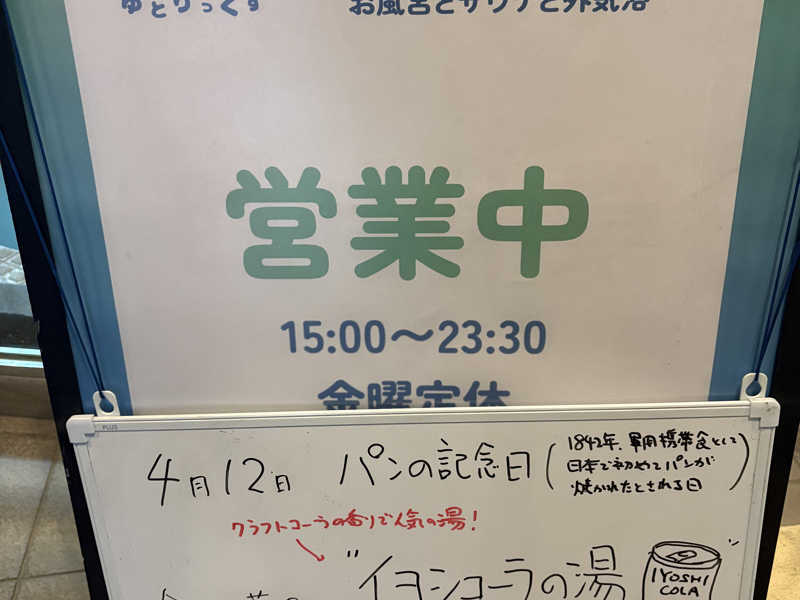 ゆとりっくす お風呂とサウナと外気浴
営業中
15:00〜23:30
金曜定休
PLUS
4月12日 パンの記念日(1842年、軍用携帯食として
日本で初めてパンが
焼かれたとされる日)
クラフトコーラの香りで人気の湯!
"イヨシコーラの湯"
IYOSHI
COLA